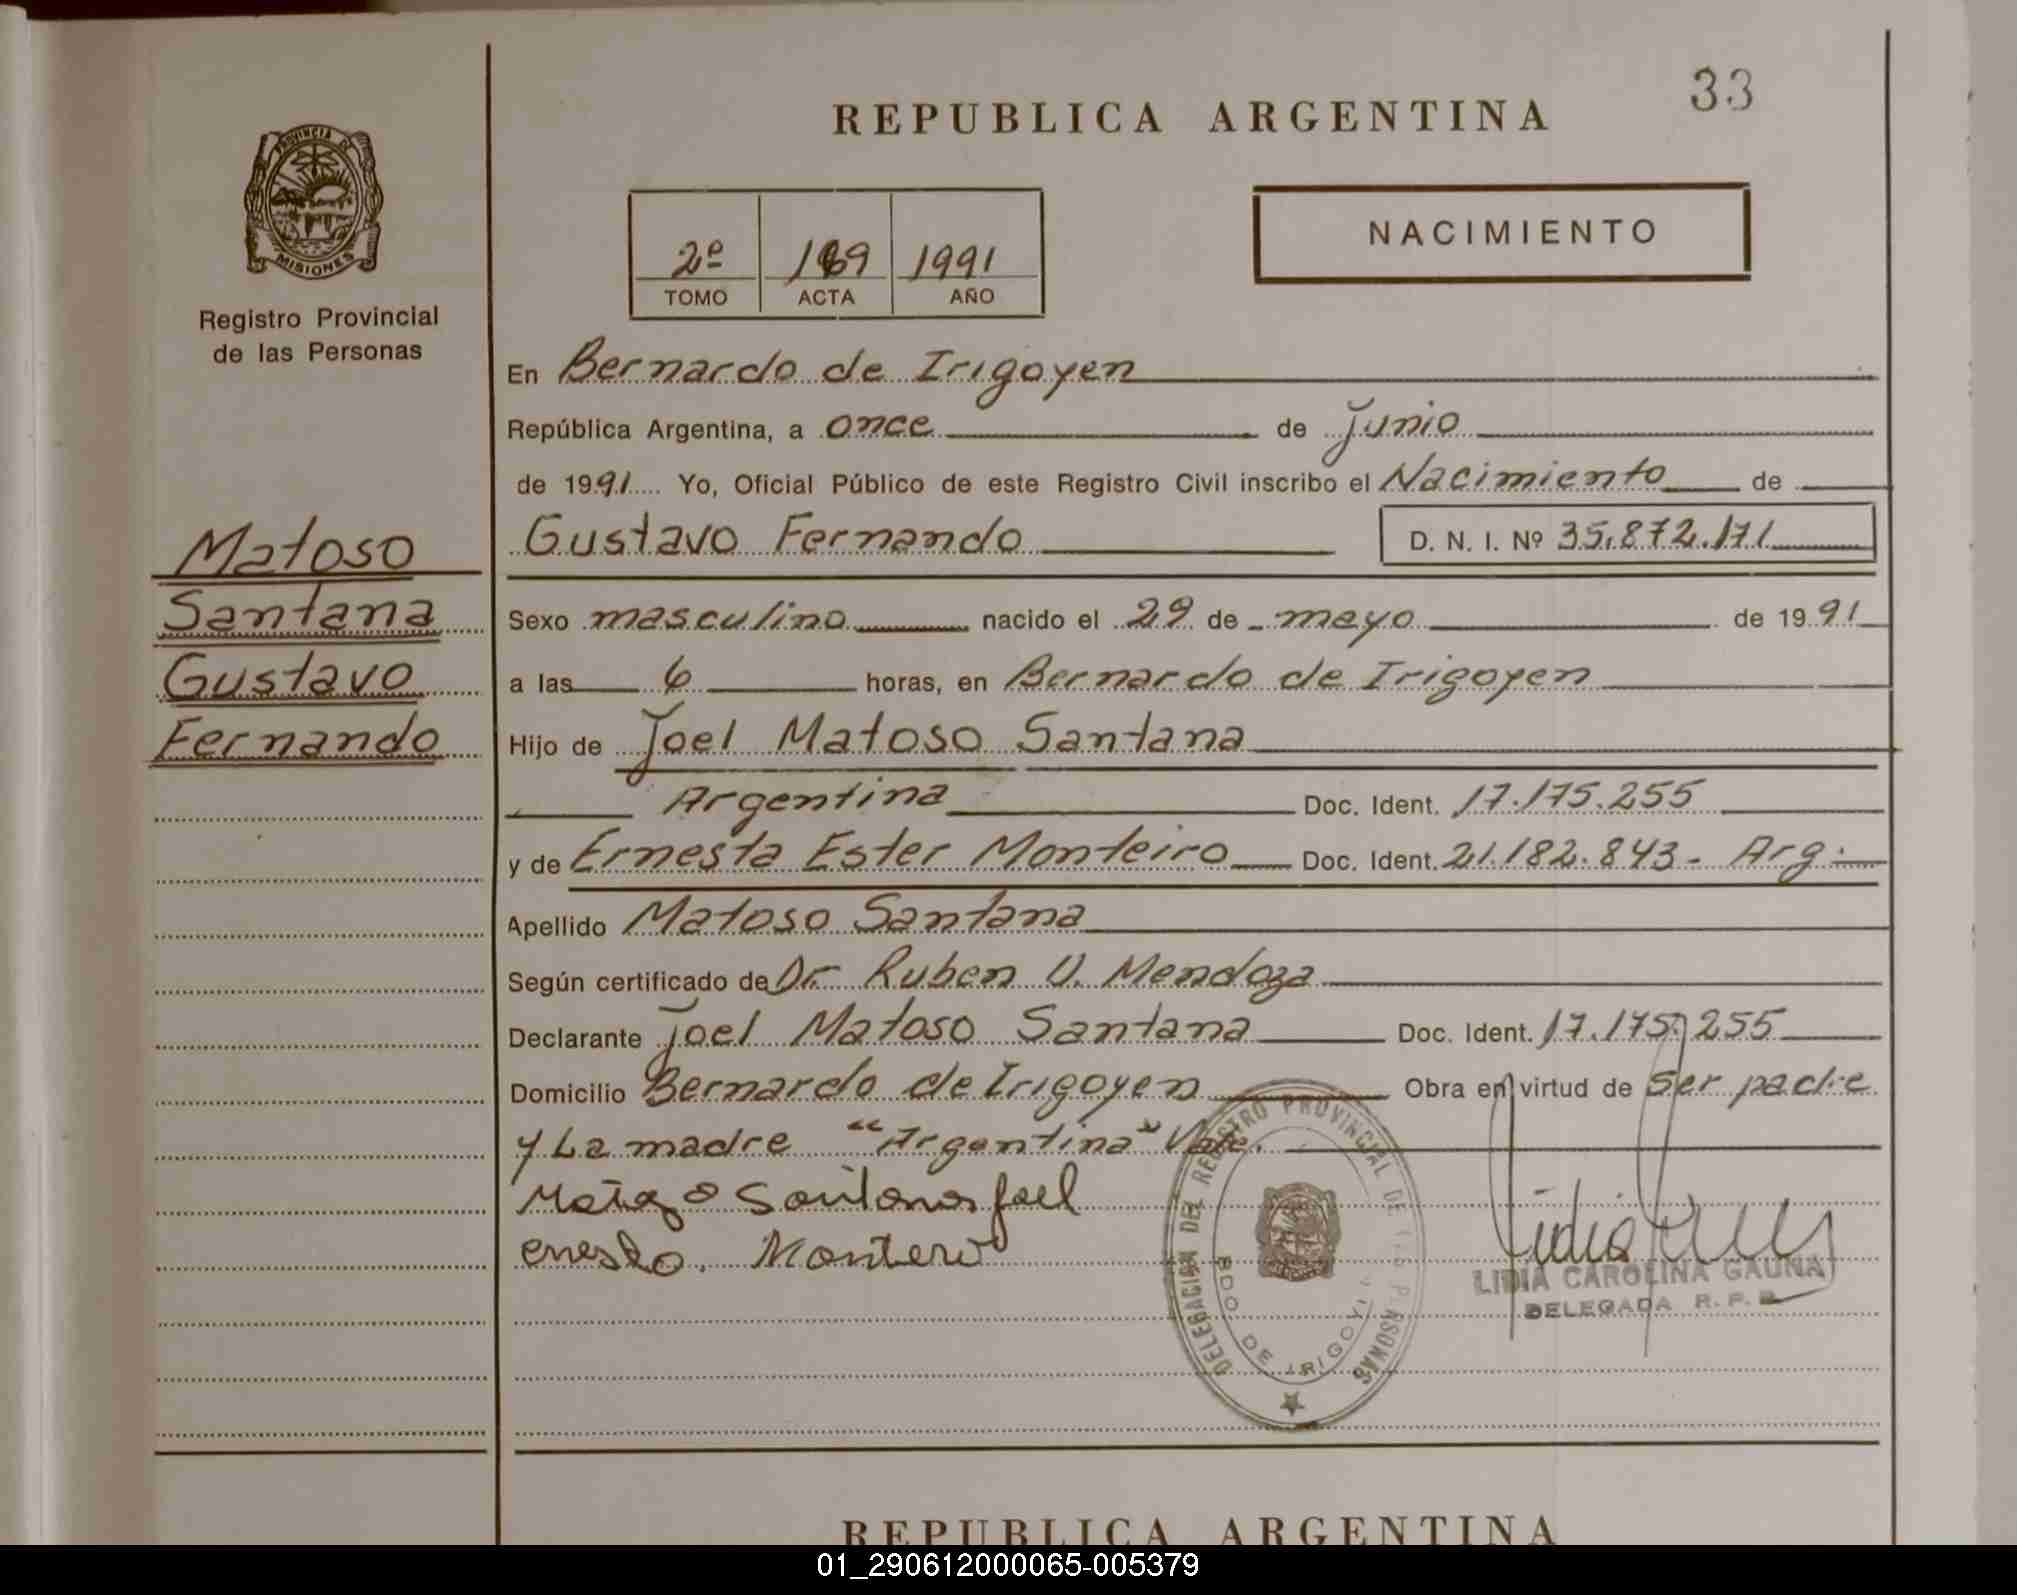 33
REPUBLICA ARGENTINA
PROVINCIA DE
MISIONES
Registro Provincial
de las Personas
NACIMIENTO
2º 1991
TOMO ACTA AÑO
En Bernardo de Irigoyen
República Argentina, a once de Junio
de 1991 Yo, Oficial Público de este Registro Civil inscribo el Nacimiento de
Gustavo Fernando D. N. I. Nº 35.872.171
Matoso
Santana
Gustavo
Fernando
Sexo masculino nacido el 29 de mayo de 1991
a las 6 horas, en Bernardo de Irigoyen
Hijo de Joel Matoso Santana
Argentina Doc. Ident. 17.175.255
y de Ernesta Ester Monteiro Doc. Ident. 21.182.843- Arg.
Apellido Matoso Santana
Según certificado de Dr. Ruben U. Mendoza
Declarante Joel Matoso Santana Doc. Ident. 17.175.255
Domicilio Bernardo de Irigoyen Obra en virtud de ser padre
y La madre "Argentina" Vale.
Santana Joel
DELEGACION DEL REGISTRO PROVINCIAL DE LAS PERSONAS
BDO DE IRIGOYEN
LIDIA CAROLINA GAUNA
DELEGADA R. P. P.
REPUBLICA ARGENTINA
01_290612000065-005379